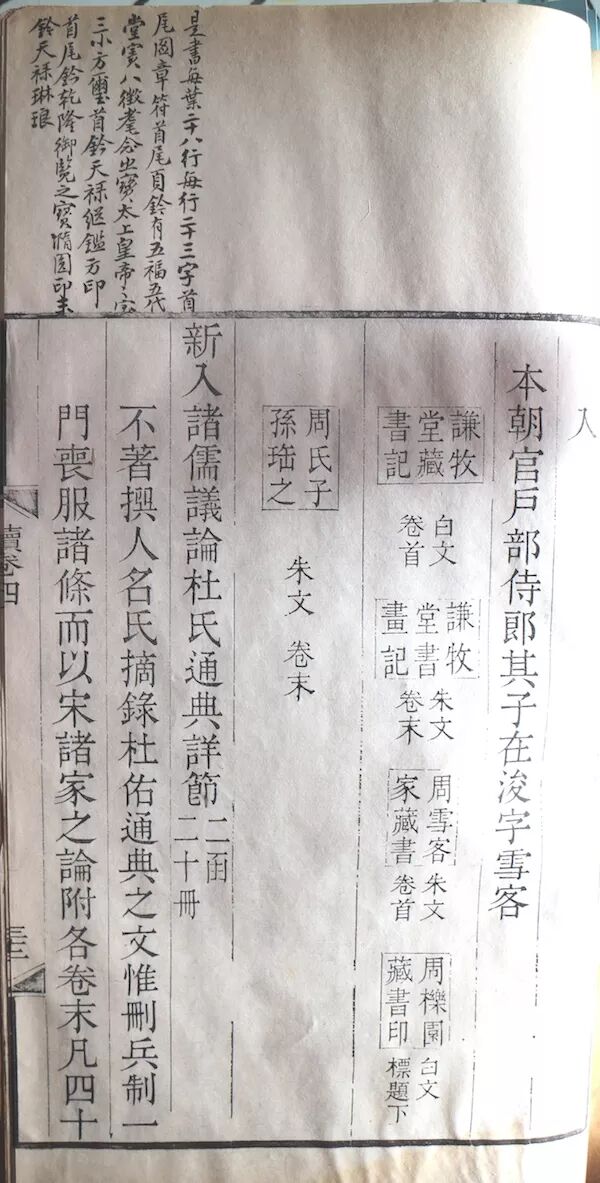 是書每葉二十八行每行二十三字首
尾圖章符首尾頁鈐有五福五代
堂寳八徵耄念之寳太上皇帝之宝
三小方璽首鈐天祿繼鑑方印
首尾鈐乾隆御覽之寳橢圓印末
鈐天祿琳琅
入
本朝官戶部侍郎其子在浚字雪客
謙牧
堂藏
書記
白文
卷首
謙牧
堂書
畫記
朱文
卷末
周雪客
家藏書
朱文
卷首
周櫟園
藏書印
白文
標題下
周氏子
孫珤之
朱文 卷末
新入諸儒議論杜氏通典詳節
二函
二十冊
不著撰人名氏摘錄杜佑通典之文惟刪兵制一
門喪服諸條而以宋諸家之論附各卷末凡四十
續卷四